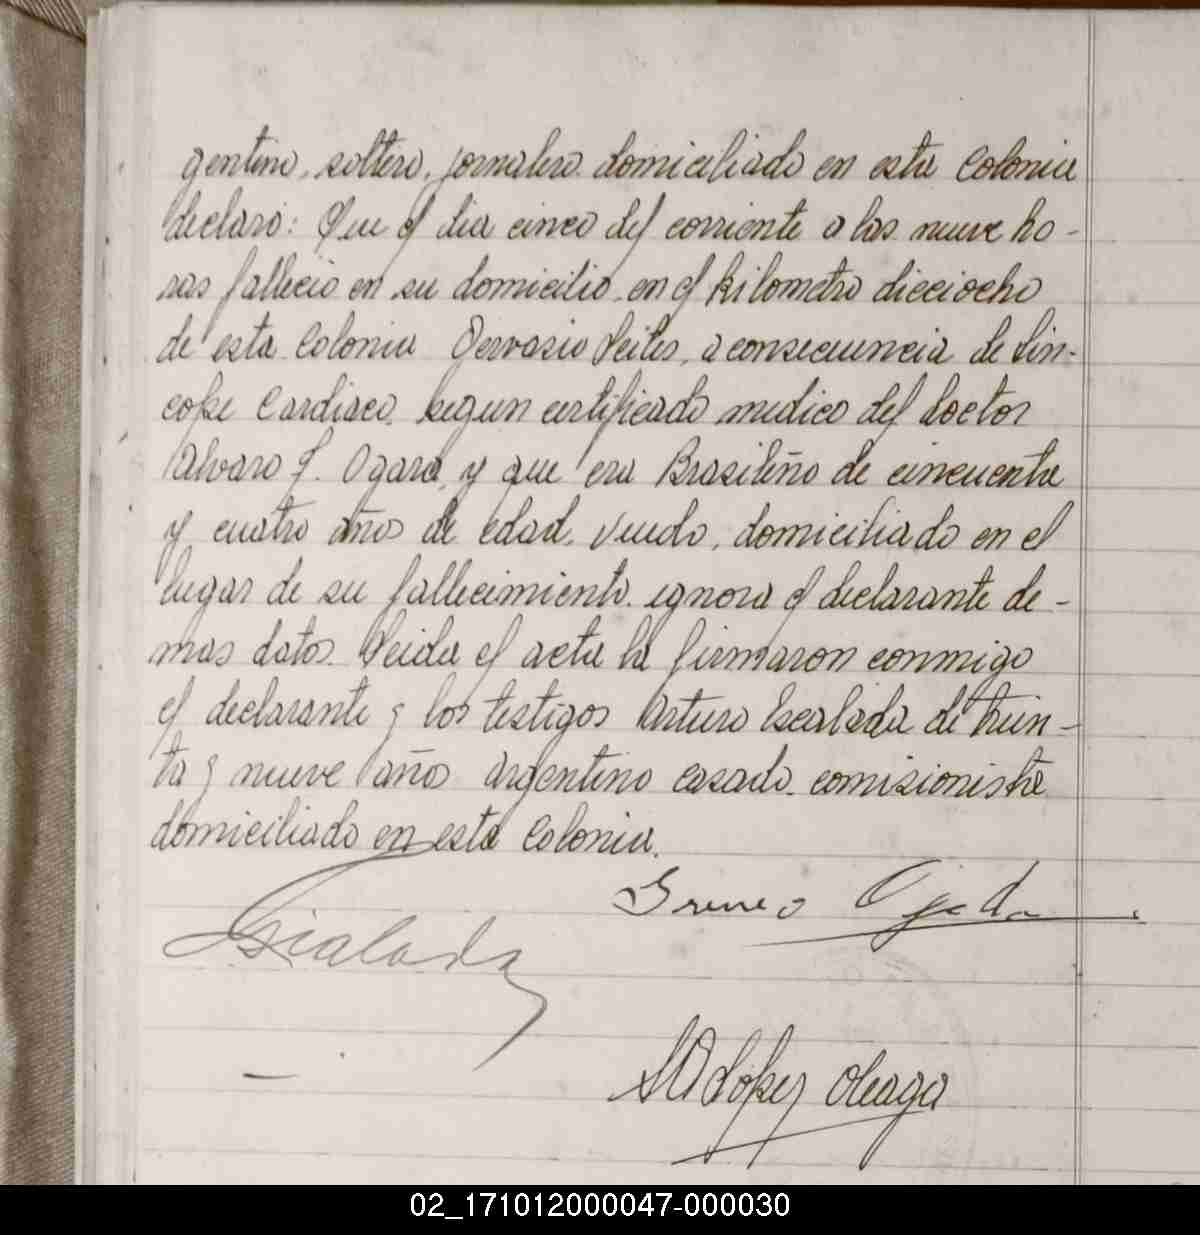 gentino, soltero, jornalero domiciliado en esta Colonia
declaró: Que el dia cinco del corriente a las nueve ho-
ras fallecio en su domicilio en el kilometro dieciocho
de esta Colonia Gervasio Leites, a consecuencia de Sin-
cope Cardiaco, segun certificado medico del doctor
Alvaro J. Ogara, y que era Brasileño de cincuenta
y cuatro años de edad, viudo, domiciliado en el
lugar de su fallecimiento. ignora el declarante de-
mas datos. Leida el acta la firmaron conmigo
el declarante y los testigos Arturo Escalada de trein-
ta y nueve años argentino casado comisionista
domiciliado en esta Colonia.
Ireneo Ojeda
Escalada
López Oleaga
02_171012000047-000030